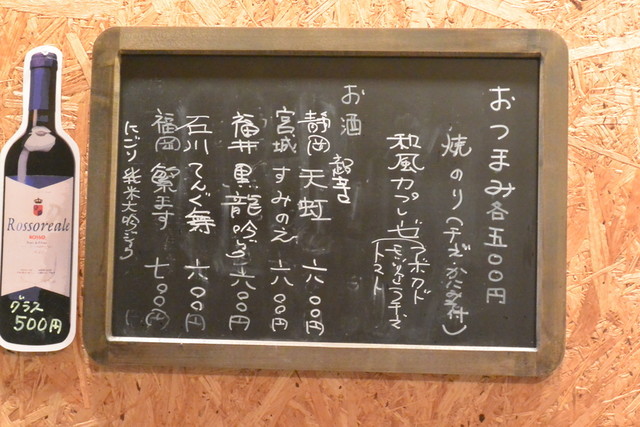 おつまみ各五〇〇円
焼のり(チーズ・かたくち付)
和風カプレーゼ
アボカド
モッツァレラチーズ
トマト
お酒
静岡 天虹 六〇〇円
超辛
宮城 すみのえ 六〇〇円
福井 黒龍吟 六〇〇円
石川 てんぐ舞 六〇〇円
福岡 繁ます 七〇〇円
にごり 純米大吟
Rossoreale
ROSSO
グラス
500円